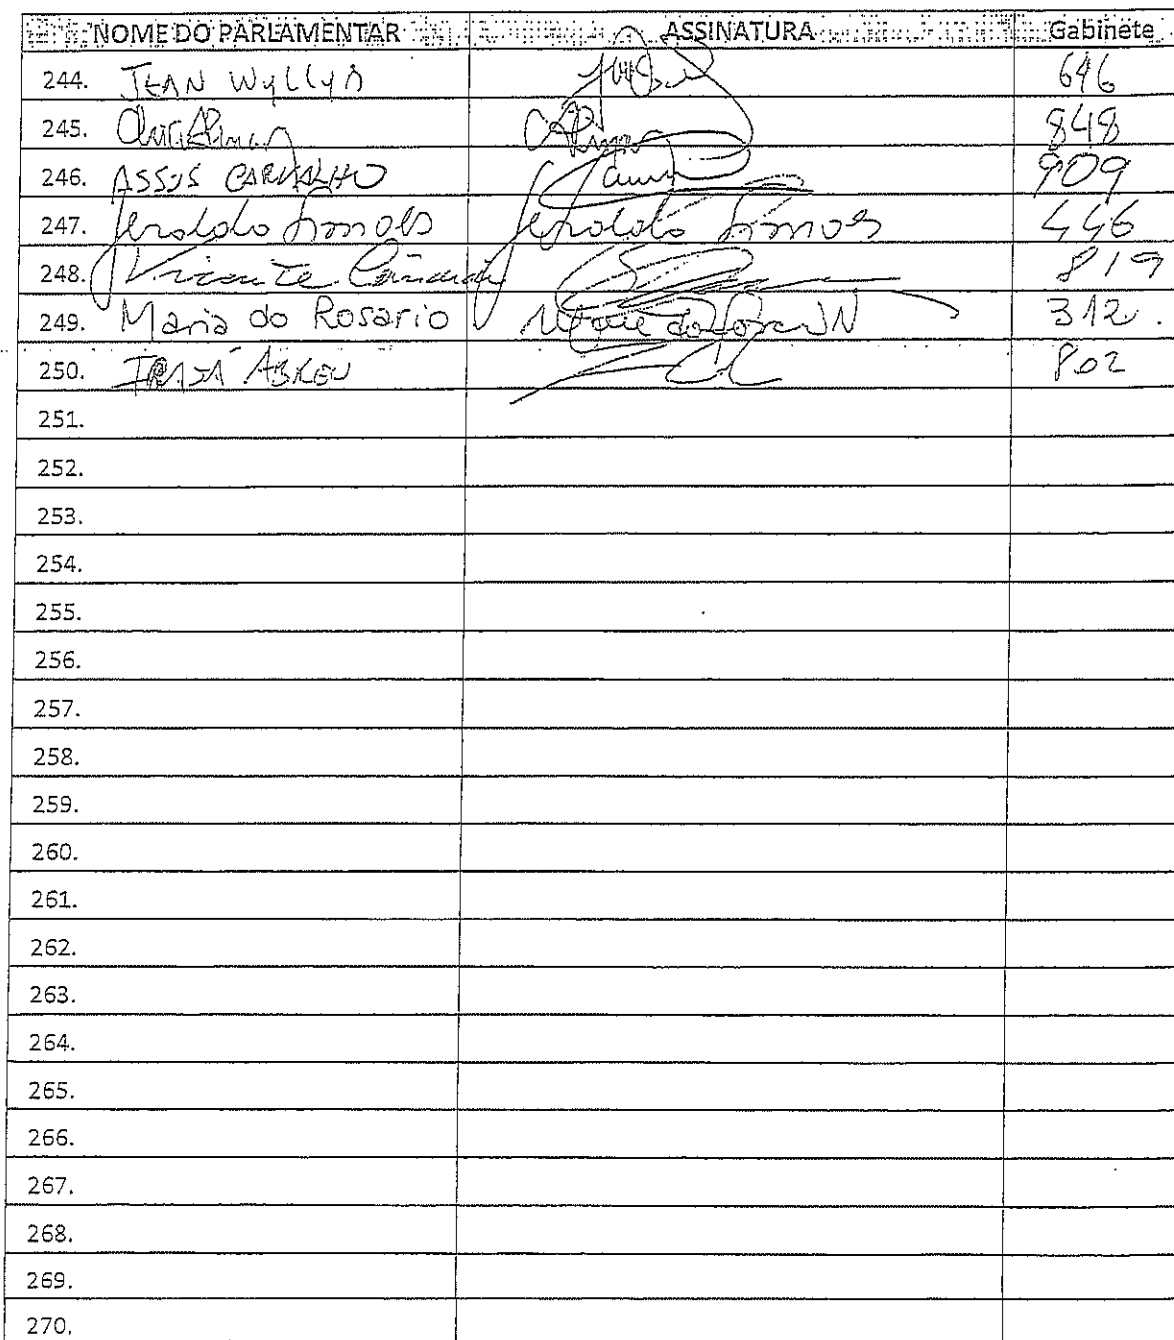 NOME DO PARLAMENTAR ASSINATURA Gabinete
244. JEAN Wyllys 646
245. 848
246. ASSIS CARVALHO 909
247. Geraldo Simões Geraldo Simões 446
248. Vicente Cândido 819
249. Maria do Rosario 312.
250. IRAJÁ ABREU 802
251.
252.
253.
254.
255.
256.
257.
258.
259.
260.
261.
262.
263.
264.
265.
266.
267.
268.
269.
270.